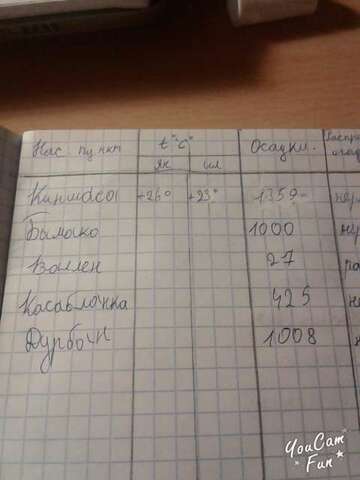 Нас. пункт t°C° Осадки. Распр
янв июл осад
Киншаса +26° +23° 1359 нер
Бамако 1000 нер
Валлен 27 ра
Касабланка 425 не
Дурбан 1008
YouCam
Fun